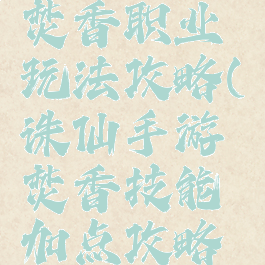 焚香职业
玩法攻略(
诛仙手游
焚香技能
加点攻略